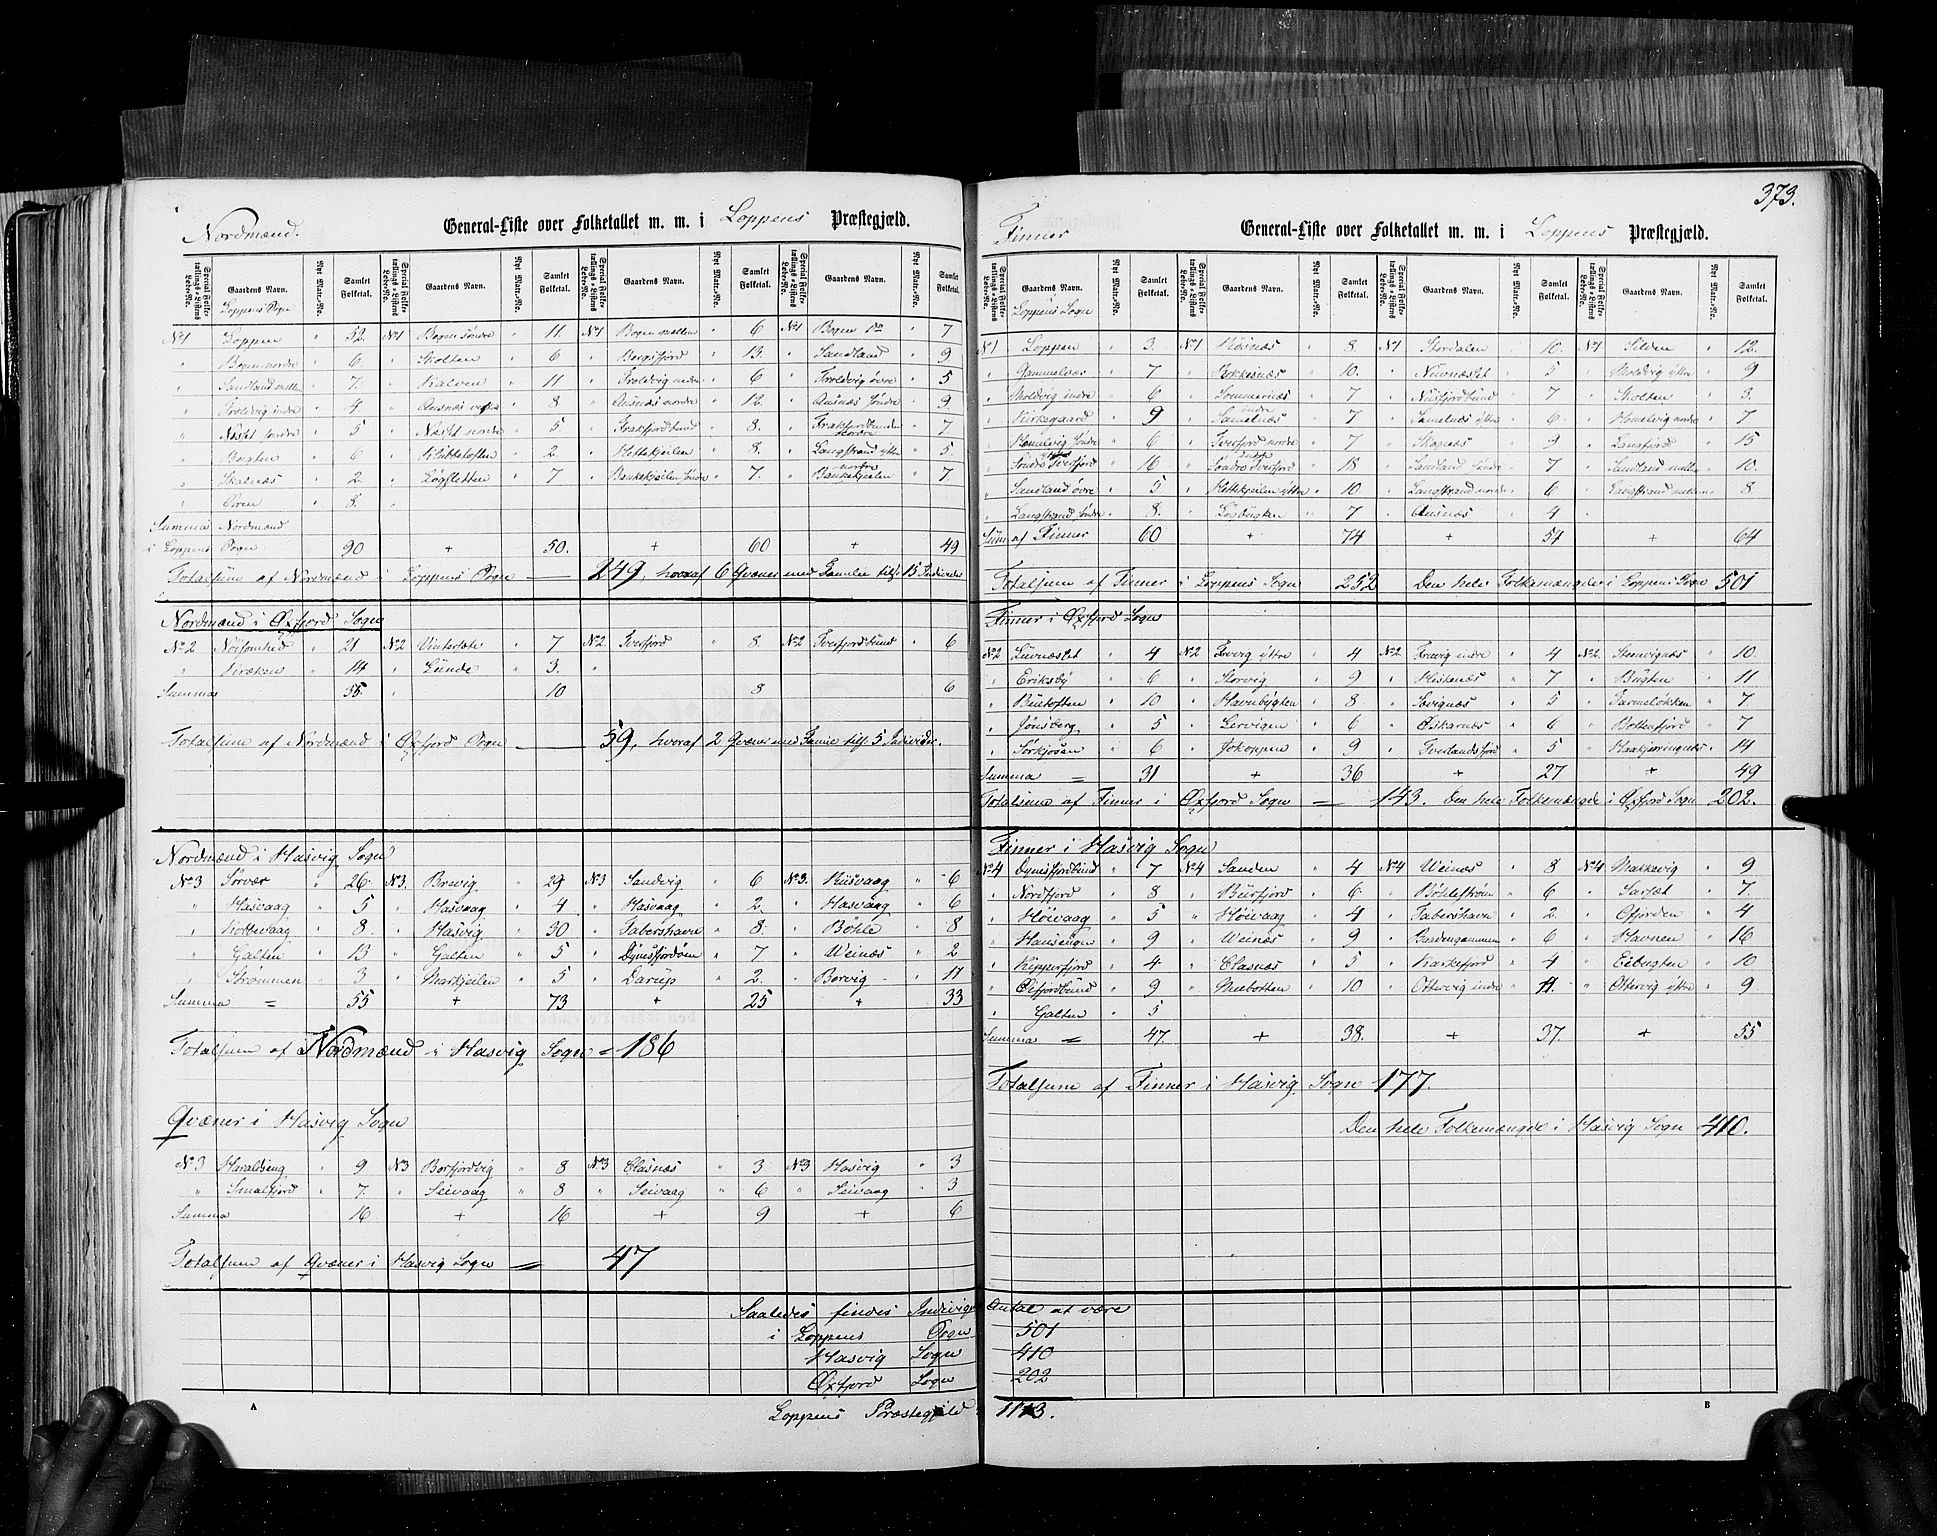 Nordmænd. General-Liste over Folketallet m. m. i Loppens Præstegjæld.
Special Folketællings-Listens Løbe-No. Gaardens Navn. Nyt Matr.-No. Samlet Folketal. Special Folketællings-Listens Løbe-No. Gaardens Navn. Nyt Matr.-No. Samlet Folketal. Special Folketællings-Listens Løbe-No. Gaardens Navn. Nyt Matr.-No. Samlet Folketal. Special Folketællings-Listens Løbe-No. Gaardens Navn. Nyt Matr.-No. Samlet Folketal.
Loppens Sogn
No 1 Loppen " 52. No 1 Bogen søndre " 11 No 1 Bogen mellem " 6 No 1 Bogen do " 7
" Bogen nordre " 6. " Skolten " 6 " Bergsfjord " 13. " Sandland " 9
" Sandland mellem " 7. " Kalven " 11 " Troldvig nedre " 6 " Troldvig øvre " 5
" Troldvig indre " 4 " Ausnæs " 8 " Ausnæs nordre " 12. " Ausnæs søndre " 9.
" Næset søndre " 5 " Næset nordre " 5 " Frakfjordbund " 8. " Frakfjordbunden nordre " 7.
" Bugten " 6 " " 2. " " 8. " Langstrand yttre " 5.
" Skalnæs " 2. " Løgsletten " 7 " søndre " 7. " nordre " 7
" Øren " 8. "
Summa Nordmænd
i Loppens Sogn 90 + 50. + 60 + 49
Totalsum af Nordmænd i Loppens Sogn — 249, hvoraf 6 Qvæner med Familie tils. 15 Individer
Nordmænd i Øxfjord Sogn
No 2 Nøisomhed " 21 No 2 Vintertæte " 7 No 2. Tverfjord " 8. No 2 Tverfjordbund " 6
" " 14 " Lunde " 3. "
Summa 35. " 10 8 6
Totalsum af Nordmænd i Øxfjord Sogn — 59, hvoraf 2 Qvæner med Famie tils. 5 Individer.
Nordmænd i Hasvig Sogn
No 3 Sørvær " 26. No 3. Brevig " 29 No 3 Sandvig " 6 No 3. Riisvaag " 6
" Hasvaag " 5 " Hasvaag " 4 " Hasvaag " 2. " Hasvaag " 6
" Kottevaag " 8. " Hasvig " 30 " Fabershavn " 8. " Bøhle " 8
" Galten " 13 " Galten " 5 " Dynesfjordøen " 7 " Weinæs " 2
" Strømmen " 3 " Markjeilen " 5 " Darup " 2. " Borvig " 11
Summa = 55 + 73 + 25 + 33
Totalsum af Nordmænd i Hasvig Sogn = 186
Qvæner i Hasvig Sogn
No 3 Haraldseng " 9 No 3 Borfjordvig " 8 No 3 Clasnæs " 3 No 3 Hasvig " 3
" Smalfjord " 7. " Seivaag " 8 " Seivaag " 6 " Seivaag " 3
Summa 16 + 16 + 9 + 6
Totalsum af Qvæner i Hasvig Sogn = 47
Saaledes findes Individ
i Loppens Sogn
Hasvig Sogn
Øxfjord Sogn
A
Loppens Præstegjeld
373.
Finner General-Liste over Folketallet m. m. i Loppens Præstegjæld.
Special Folketællings-Listens Løbe-No. Gaardens Navn. Nyt Matr.-No. Samlet Folketal. Special Folketællings-Listens Løbe-No. Gaardens Navn. Nyt Matr.-No. Samlet Folketal. Special Folketællings-Listens Løbe-No. Gaardens Navn. Nyt Matr.-No. Samlet Folketal. Special Folketællings-Listens Løbe-No. Gaardens Navn. Nyt Matr.-No. Samlet Folketal.
i Loppens Sogn
No 1 Loppen " 3. No 1 Røsnæs " 8 No 1 Stordalen " 10. No 1 Silden " 12.
" Gammelvær " 7 " Kokkesnæs " 10. " " 5 " Skoldvig yttre " 9
" Skoldvig indre " 6 " Sommernæs " 7 " Nuvsfjordbund " 7 " Skolten " 3.
" Kirkegaard " 9 " indre " 7 " yttre " 6 " Komelvig nordre " 7
" Komelvig søndre " 6 " Tverfjord nordre " 7 " Skognæs " 9 " Langfjord " 15
" Søndre Tverfjord " 16 " Søndre Tverfjord " 18 " Sandland søndre " 7 " Sandland mellem " 10.
" Sandland øvre " 5. " yttre " 10. " Langstrand nordre " 6 " Langstrand mellem " 8
" Langstrand søndre " 8. " Løgbugten " 7 " Ausnæs " 4 "
Sum af Finner 60 + 74 + 54 + 64
Totalsum af Finner i Loppens Sogn 252 Den hele Folkemængde i Loppens Sogn 501
Finner i Øxfjord Sogn
No 2 " 4 No 2 yttre " 4 No 2. indre " 4 No 2. Steenvignæs " 10.
" Eriksby " 6 " Storvig " 9 " " 7 " Bugten " 11
" " 10 " Havnbugten " 8 " " 5 " " 7
" Jønsberg " 5 " Lervigen " 6 " Oskarnæs " 6 " Bottenfjord " 7
" Sørkjosen " 6 " Jokoppen " 9 " Tverlandsfjord " 5 " Haakjerringnæs " 14
Summa = 31 + 36 + 27 + 49
Totalsum af Finner i Øxfjord Sogn = 143. Den hele Folkemængde i Øxfjord Sogn 202.
Finner i Hasvig Sogn
No 4 Dynesfjordbund " 7 No 4 Sanden " 4 No 4 Weinæs " 8 No 4 Makkevig " 9
" Nordfjord " 8 " Burfjord " 6 " Bøhlestrøm " 6 " " 7
" Høivaag " 5 " Høivaag " 4 " Fabershavn " 2. " Ofjorden " 4
" " 9 " Weinæs " 9 " " 6 " Havnen " 16
" Kipperfjord " 4 " Clasnæs " 5 " " 4 " Eibugten " 10
" " 9 " " 10 " Ottervig indre " 11. " Ottervig yttre " 9
" Galten " 5
Summa = 47. + 38. + 37. + 55
Totalsum af Finner i Hasvig Sogn 177.
Den hele Folkemængde i Hasvig Sogn 410.
Antal at være
501
410
202
1113.
B